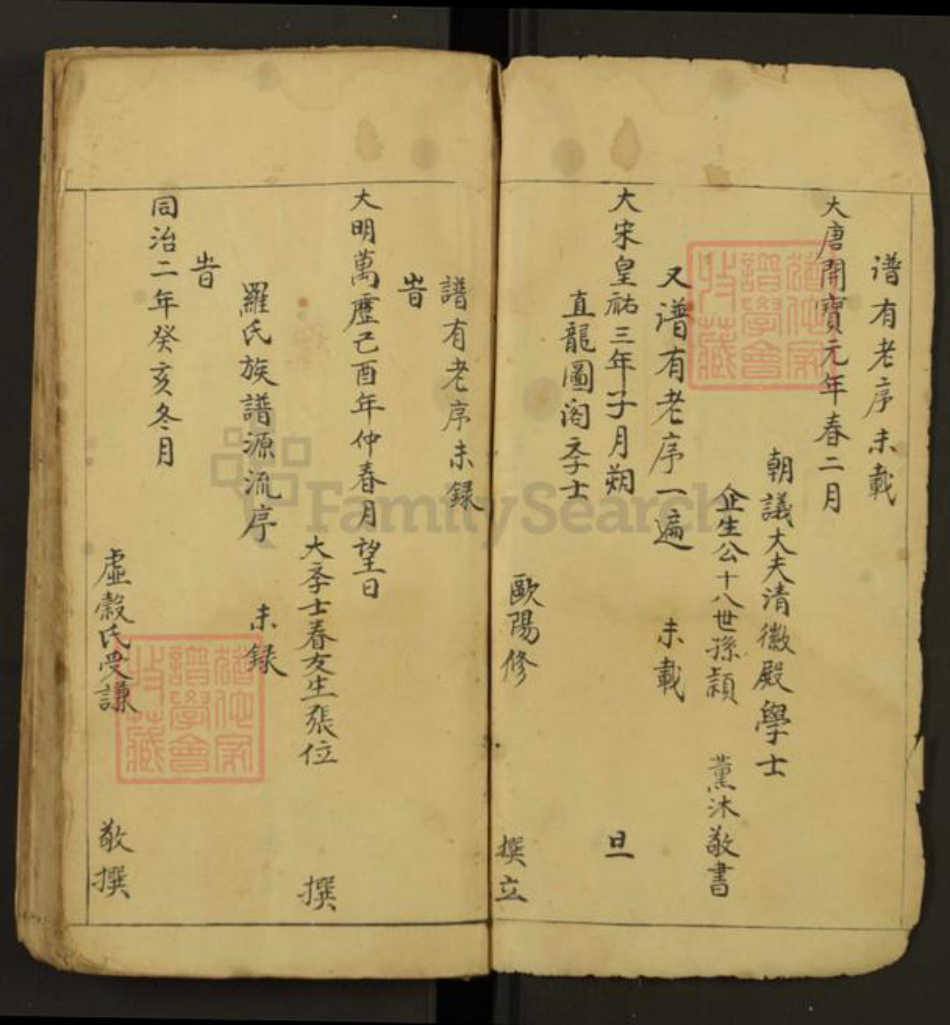 譜有老序未載
大唐開寶元年春二月
朝議大夫清徽殿學士
企生公十八世孫潁 薰沐敬書
又譜有老序一遍 未載
大宋皇祐三年子月朔 旦
直龍圖阁孝士
歐陽修 撰立
譜有老序未録
旹
大明萬歷己酉年仲春月望日
大孝士春友生張位 撰
羅氏族譜源流序 未録
旹
同治二年癸亥冬月
虛穀氏受謙 敬撰
FamilySearch